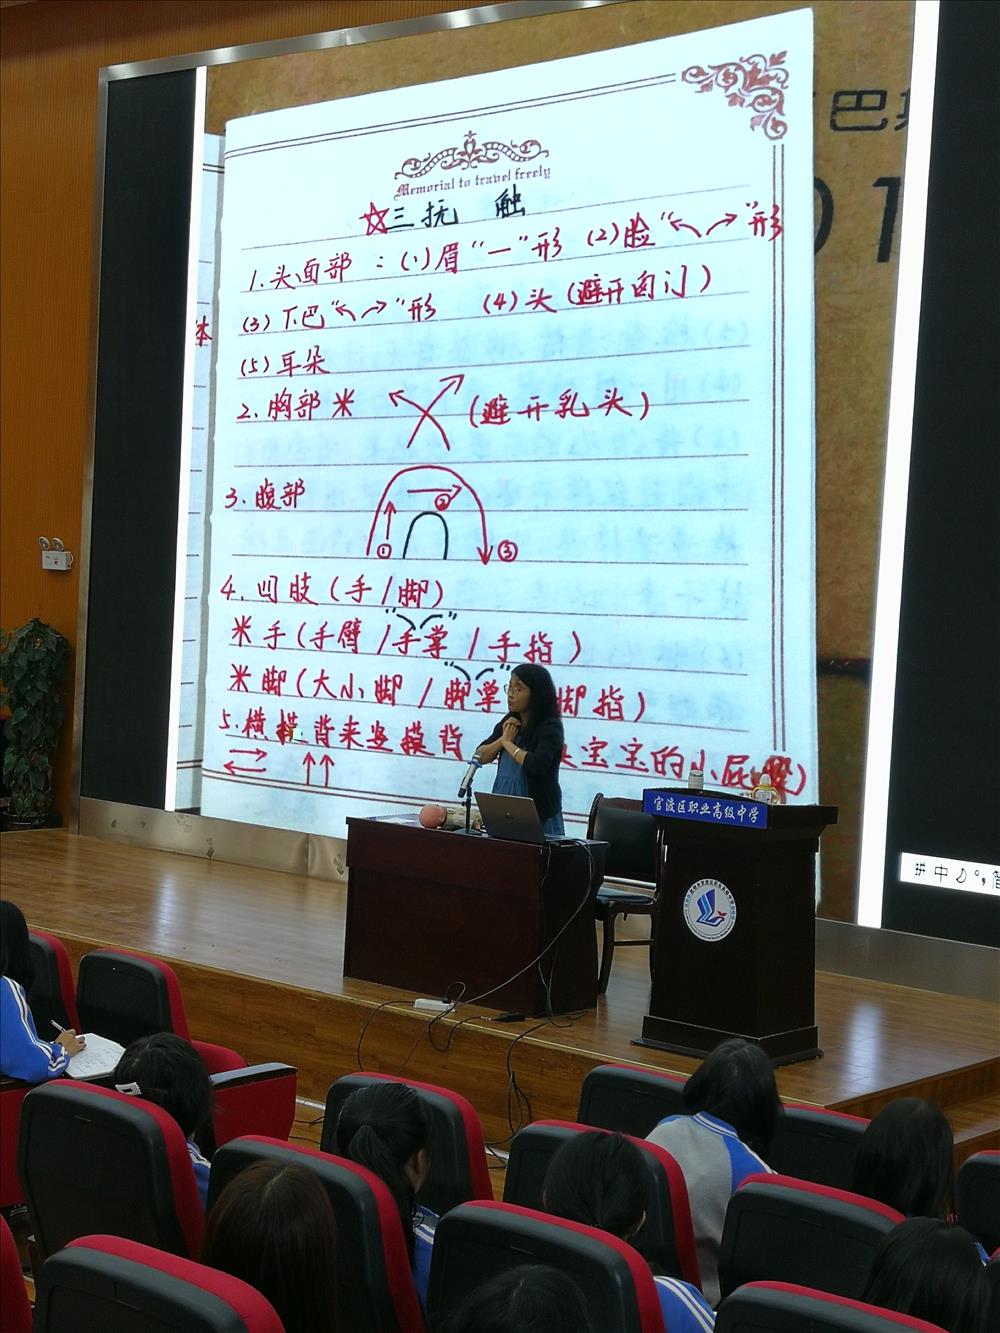 Memorial to travel freely
☆三抚 触
1.头面部:(1)眉“一”形 (2)脸“↖↗”形
(3)下巴“↖↗”形 (4)头(避开囟门)
(5)耳朵
2.胸部米 (避开乳头)
3.腹部
① ② ③
4.四肢(手/脚)
米手(手臂/手掌/手指)
米脚(大小脚/脚掌 脚指)
5.横 背来 摸背 宝宝的小屁
体
巴
01
官渡区职业高级中学
拼 中